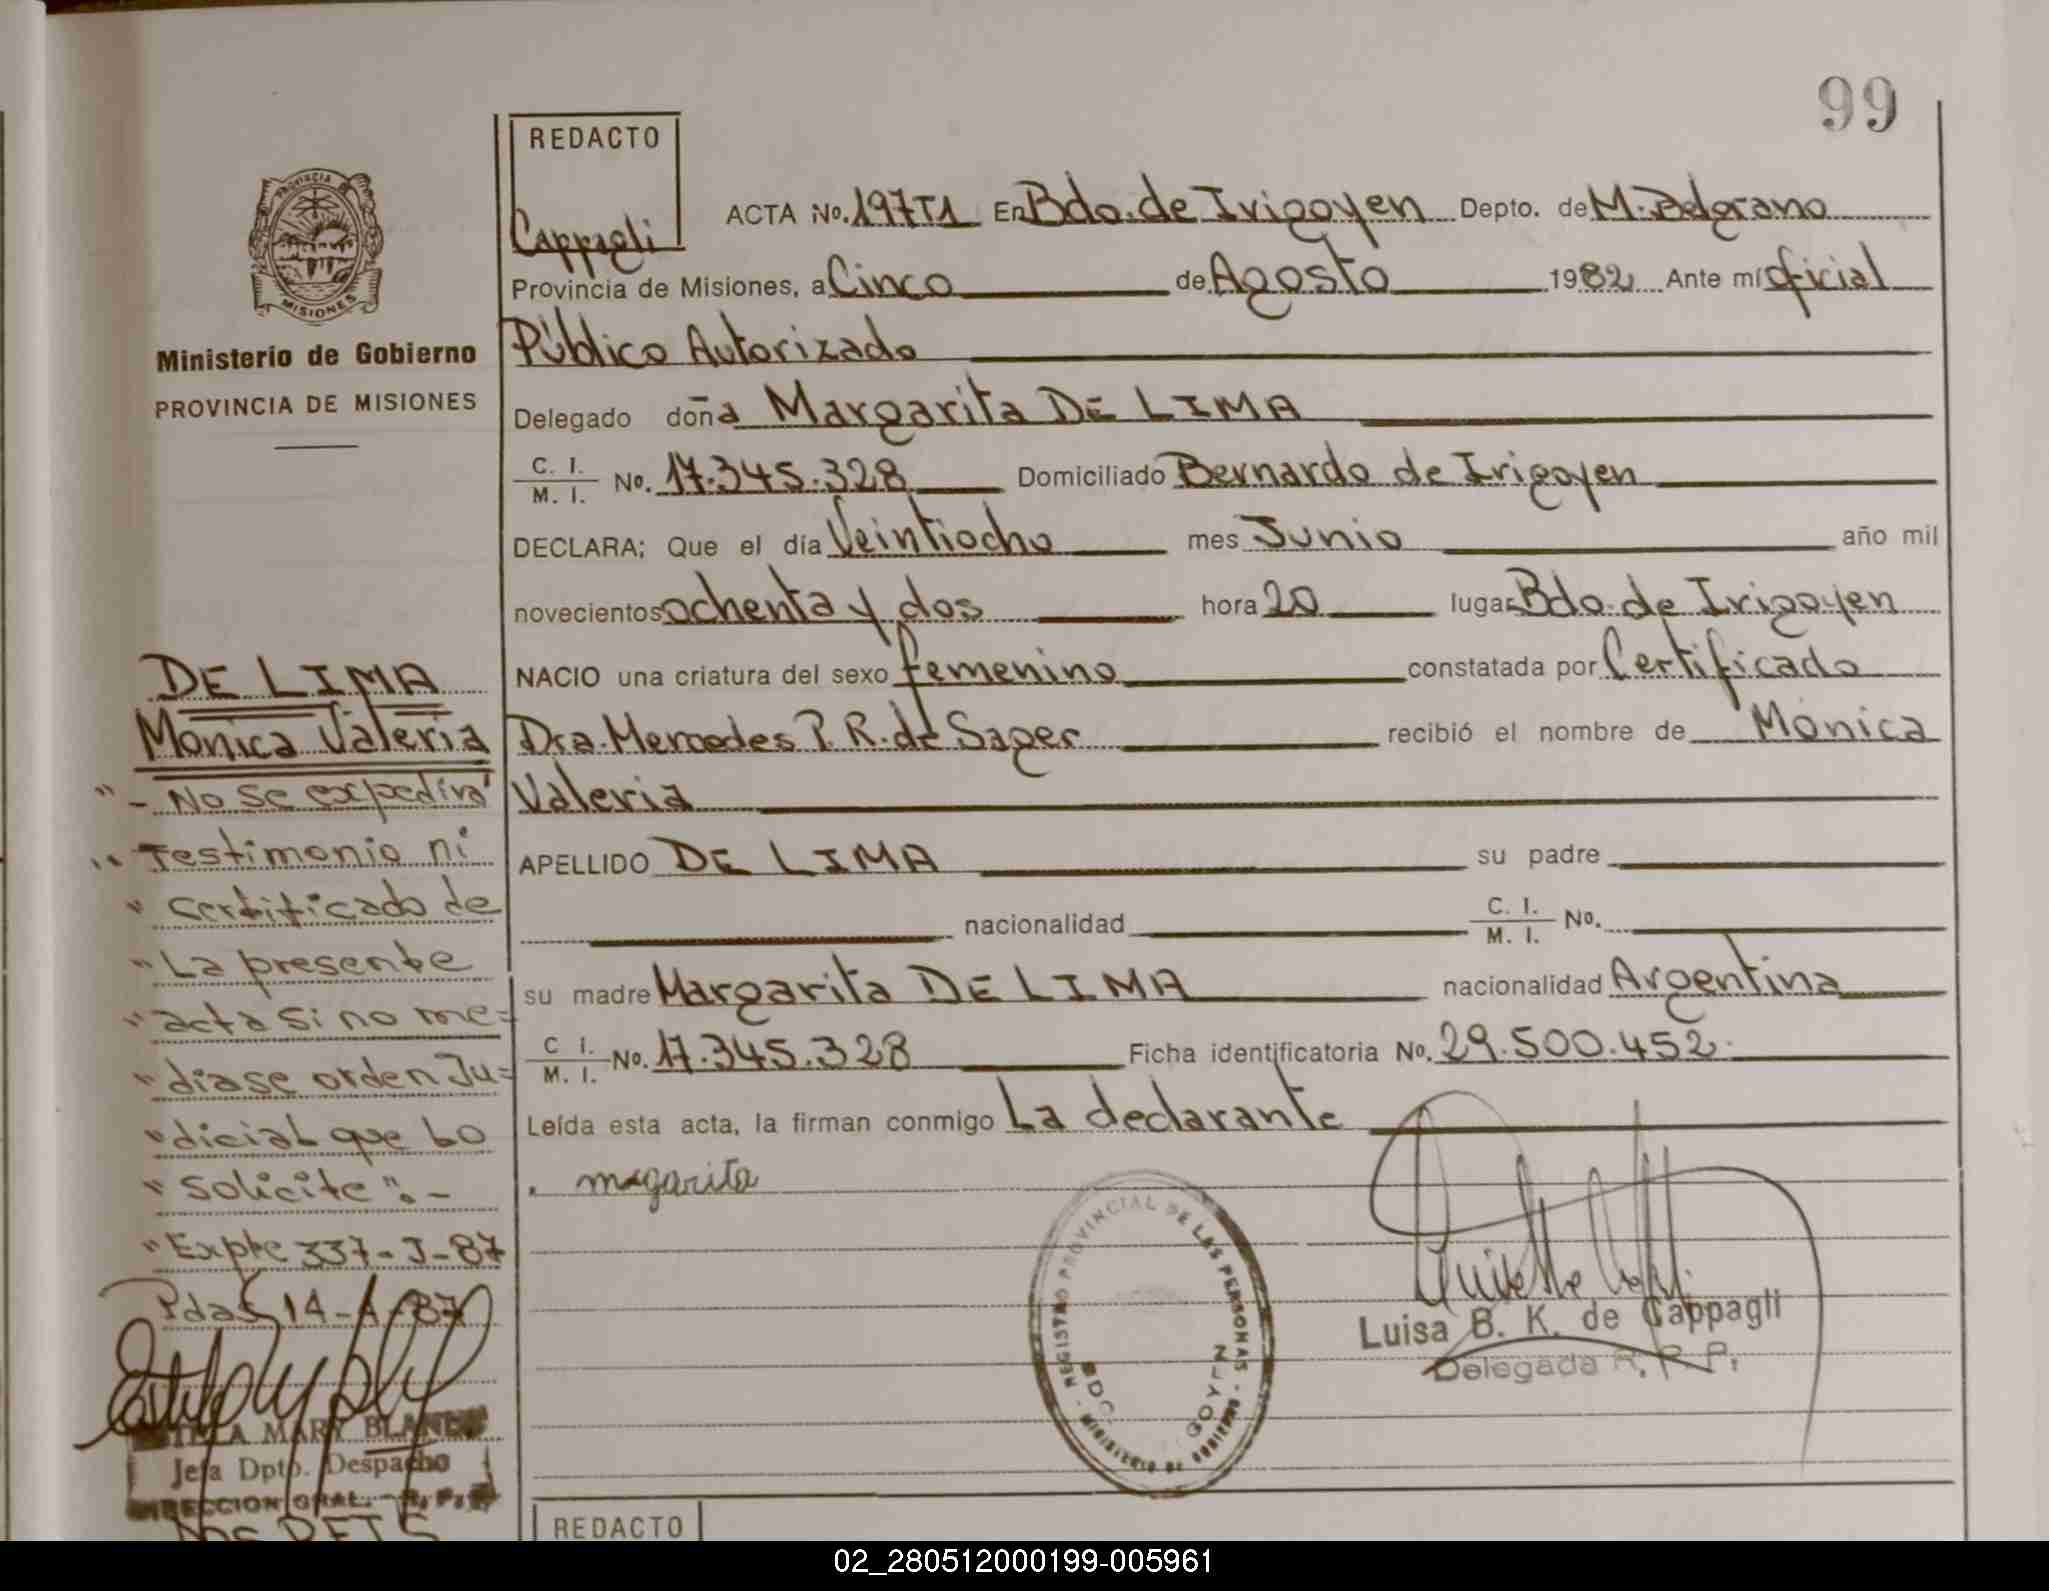 99
REDACTO
Cappagli
ACTA No. 197T1 En Bdo. de Irigoyen Depto. de M. Belgrano
Provincia de Misiones, a Cinco de Agosto 1982 Ante mí oficial
Público Autorizado
Delegado doña Margarita DE LIMA
C. I.
M. I. No. 17.345.328 Domiciliado Bernardo de Irigoyen
DECLARA; Que el día Veintiocho mes Junio año mil
novecientos ochenta y dos hora 20 lugar Bdo. de Irigoyen
NACIO una criatura del sexo femenino constatada por Certificado
Dra. Mercedes P. R. de Sager recibió el nombre de Mónica
Valeria
APELLIDO DE LIMA su padre
nacionalidad C. I.
M. I. No.
su madre Margarita DE LIMA nacionalidad Argentina
C I.
M. I. No. 17.345.328 Ficha identificatoria No. 29.500.452
Leída esta acta, la firman conmigo La declarante
margarita
REGISTRO PROVINCIAL DE LAS PERSONAS
BDO. GOYEN
Luisa B. K. de Cappagli
Delegada R. P. P.
PROVINCIA
MISIONES
Ministerio de Gobierno
PROVINCIA DE MISIONES
DE LIMA
Mónica Valeria
"- No se expedirá
" Testimonio ni
" certificado de
" La presente
" acta si no me=
" diase orden Ju=
" dicial que lo
" solicite".-
" Expte 337-J-87
Pdas 14-4-87
MARY BLAN
Jefa Dpto. Despacho
DIRECCION GRAL. R. P. P.
REDACTO
02_280512000199-005961